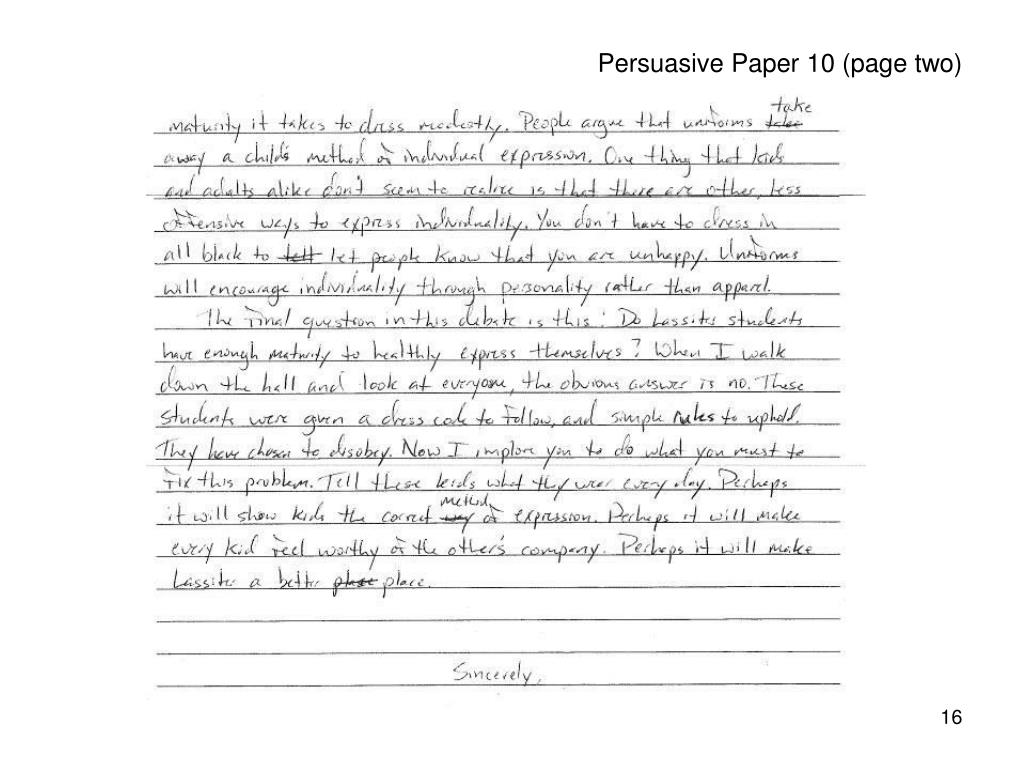 Persuasive Paper 10 (page two)
take
maturity it takes to dress modestly. People argue that uniforms takes
away a child's method of individual expression. One thing that kids
and adults alike don't seem to realize is that there are other, less
offensive ways to express individuality. You don't have to dress in
all black to tell let people know that you are unhappy. Uniforms
will encourage individuality through personality rather than apparel.
The final question in this debate is this: Do Lassiter students
have enough maturity to healthly express themselves? When I walk
down the hall and look at everyone, the obvious answer is no. These
students were given a dress code to follow, and simple rules to uphold.
They have chosen to disobey. Now I implore you to do what you must to
fix this problem. Tell these kids what they wear every day. Perhaps
method
it will show kids the correct way of expression. Perhaps it will make
every kid feel worthy of the other's company. Perhaps it will make
Lassiter a better place.
Sincerely,
16